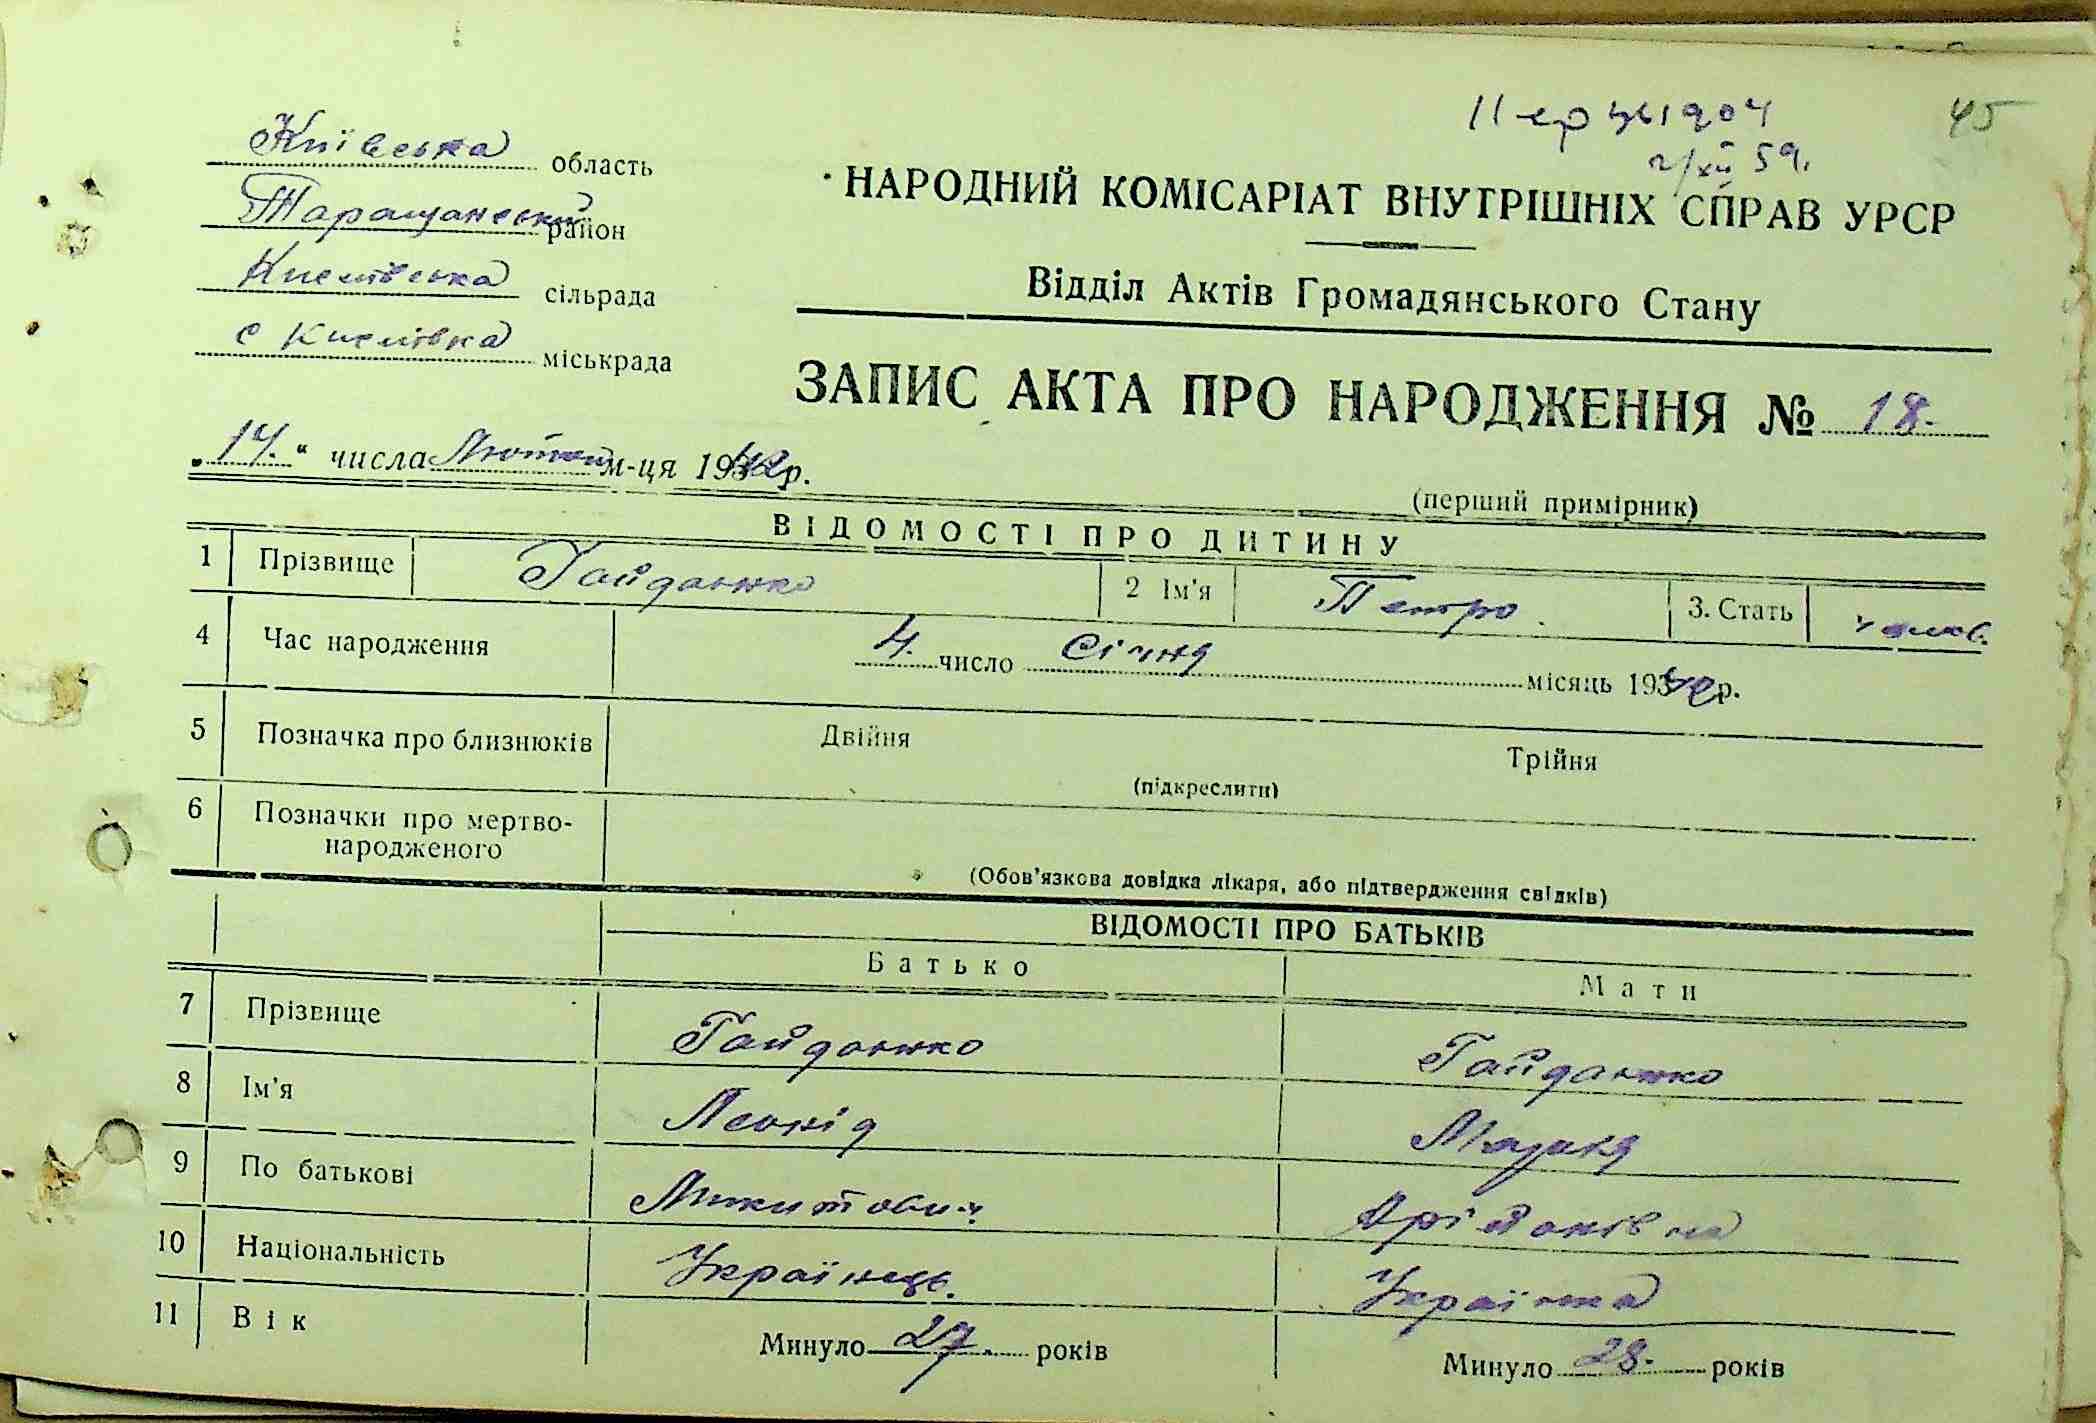 45
59.
Київська область
Таращанський район
Кислівська сільрада
с Кислівка міськрада
НАРОДНИЙ КОМІСАРІАТ ВНУТРІШНІХ СПРАВ УРСР
Відділ Актів Громадянського Стану
ЗАПИС АКТА ПРО НАРОДЖЕННЯ № 18.
„14.“ числа Лютого м-ця 1942 р.
(перший примірник)
ВІДОМОСТІ ПРО ДИТИНУ
1 Прізвище Гайданжко 2 Ім'я Петро. 3. Стать чолов.
4 Час народження 4. число Січня місяць 1942 р.
5 Позначка про близнюків Двійня Трійня
(підкреслити)
6 Позначки про мертво-
народженого
(Обов'язкова довідка лікаря, або підтвердження свідків)
ВІДОМОСТІ ПРО БАТЬКІВ
Батько Мати
7 Прізвище
8 Ім'я Леонід
9 По батькові Микитович
10 Національність Українець. Українка
11 Вік Минуло 27. років Минуло 28. років